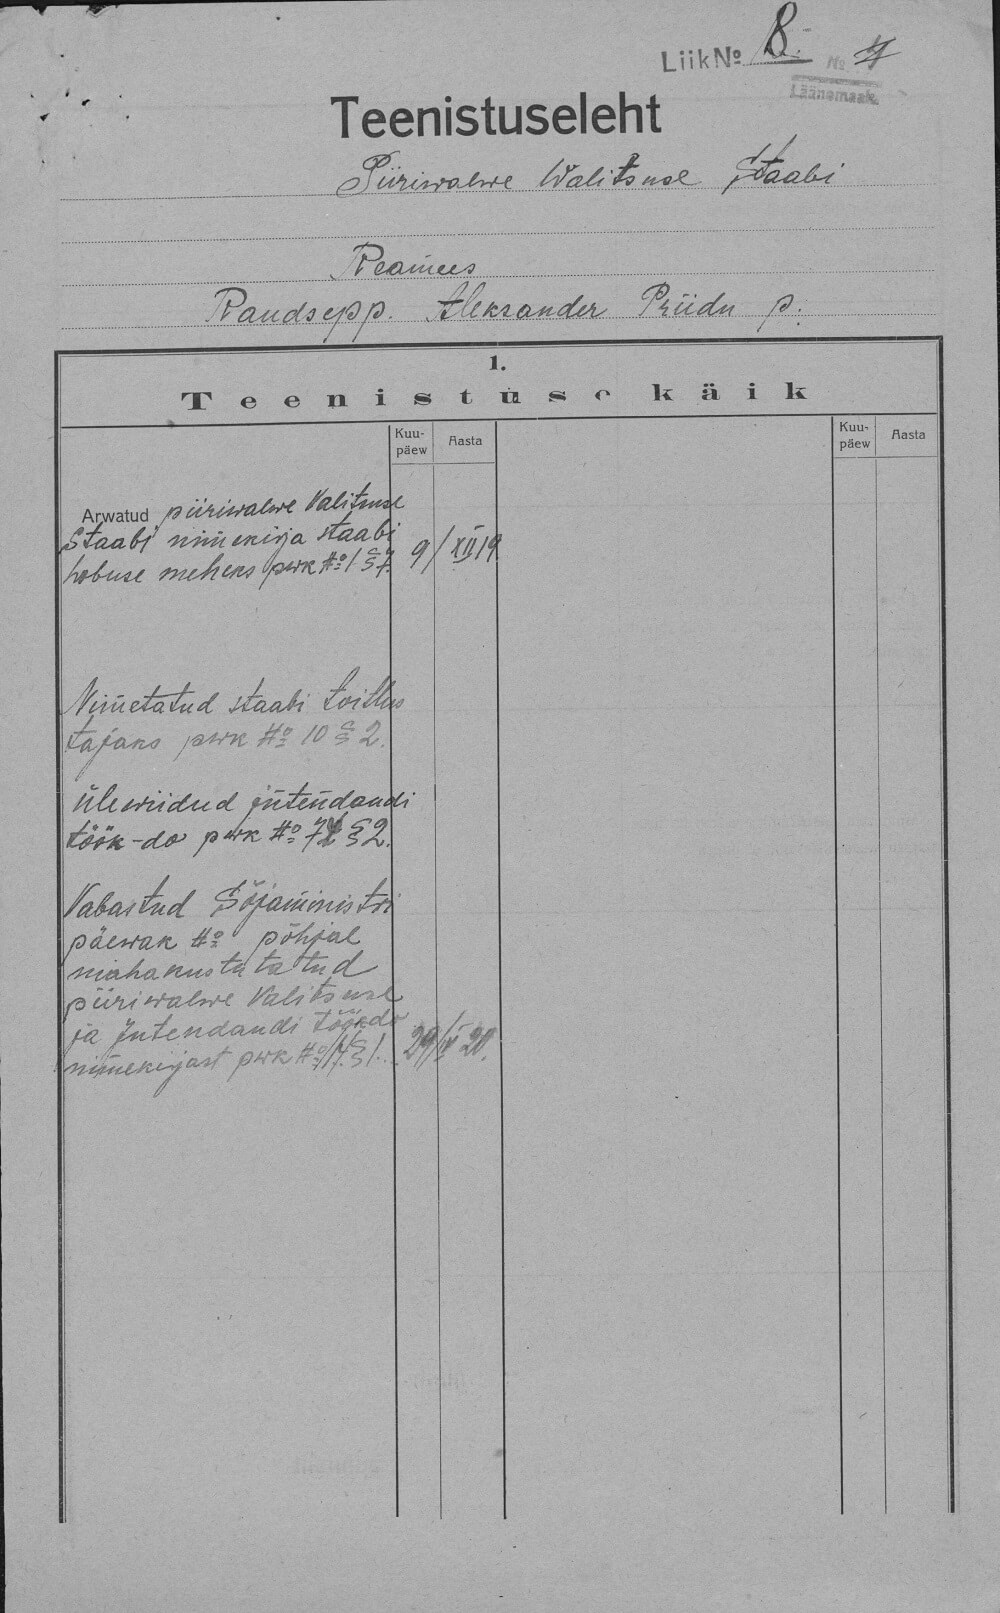 Liik № 8.
№ 7
Läänemaak.
Teenistuseleht
Piiriwalwe Walitsuse Staabi
Reamees
Raudsepp. Aleksander Priidu p.
1.
Teenistuse käik
Kuu-päew Aasta Kuu-päew Aasta
Arwatud piiriwalwe Valitsuse
Staabi nimekirja staabi
hobuse meheks pwk № 1 § 7. 9/XII 19
Nimetatud staabi toitlus
tajaks pwk № 10 § 2.
Üle wiidud intendandi
töök-do pwk № § 2.
Vabastud Sõjaministri
päewak № põhjal
mahakustutatud
piiriwalwe Valitsuse
ja Intendandi töökdo
nimekirjast pwk № § 1. 29/ 20.